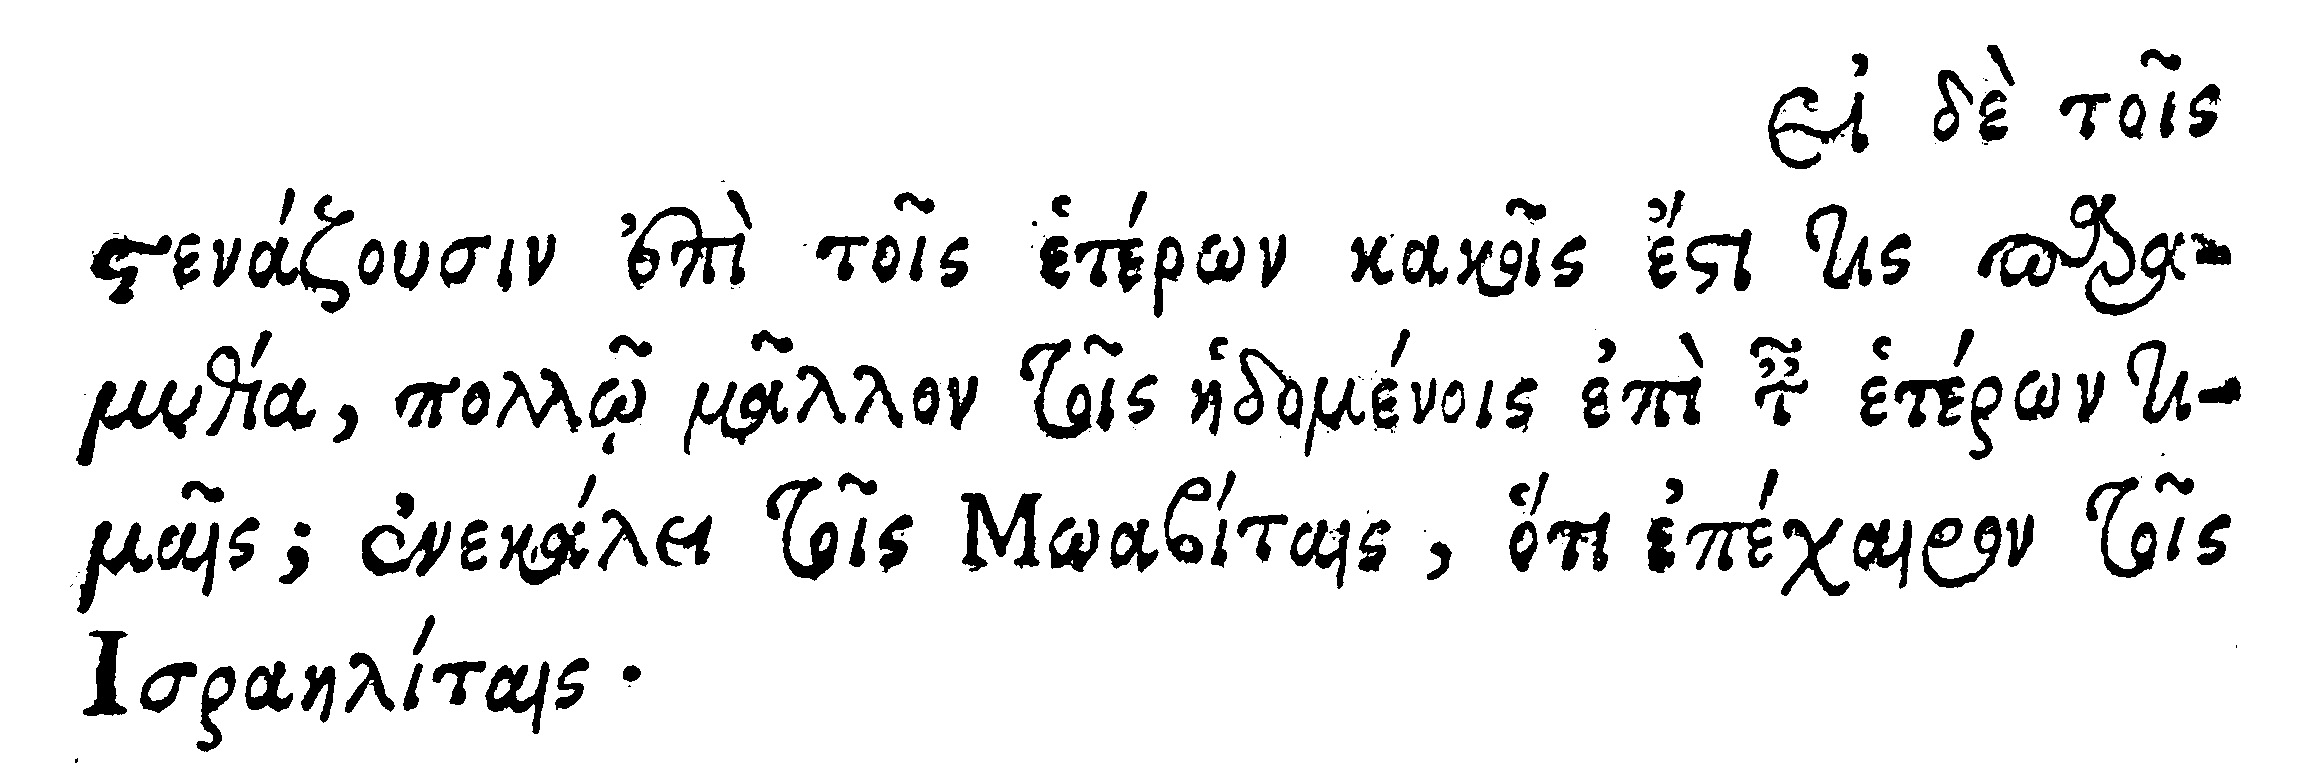 εἰ δὲ τοῖς
στενάζουσιν ἐπὶ τοῖς ἑτέρων κακοῖς ἔστι τις παρα-
μυθία, πολλῷ μᾶλλον τοῖς ἡδομένοις ἐπὶ ταῖς ἑτέρων τι-
μαῖς; ἐνεκάλει τοῖς Μωαβίταις, ὅτι ἐπέχαιρον τοῖς
Ισραηλίταις·